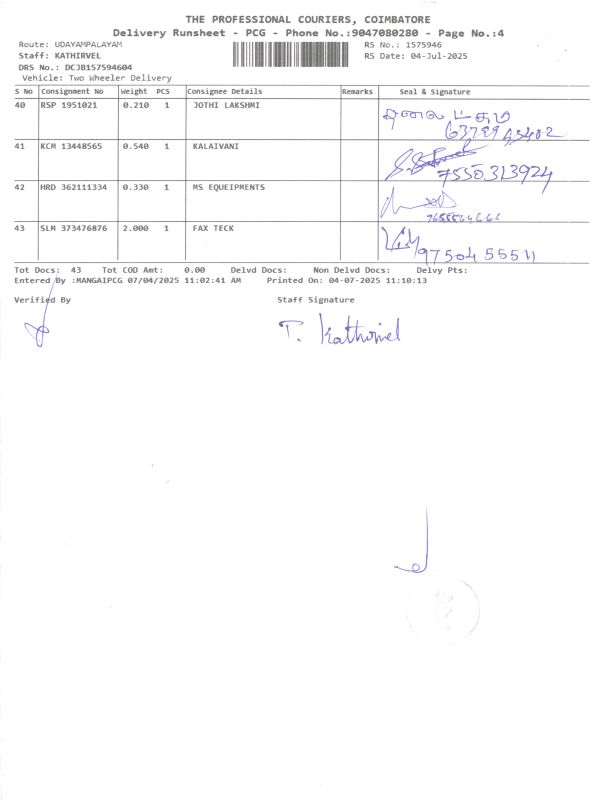 THE PROFESSIONAL COURIERS, COIMBATORE
Delivery Runsheet - PCG - Phone No.:9047080280 - Page No.:4
Route: UDAYAMPALAYAM RS No.: 1575946
Staff: KATHIRVEL RS Date: 04-Jul-2025
DRS No.: DCJB157594604
Vehicle: Two Wheeler Delivery
S No Consignment No Weight PCS Consignee Details Remarks Seal & Signature
40 RSP 1951021 0.210 1 JOTHI LAKSHMI
41 KCM 13448565 0.540 1 KALAIVANI
7550313924
42 HRD 362111334 0.330 1 MS EQUEIPMENTS
43 SLM 373476876 2.000 1 FAX TECK
9750455511
Tot Docs: 43 Tot COD Amt: 0.00 Delvd Docs: Non Delvd Docs: Delvy Pts:
Entered By :MANGAIPCG 07/04/2025 11:02:41 AM Printed On: 04-07-2025 11:10:13
Verified By Staff Signature
T. Kathirvel